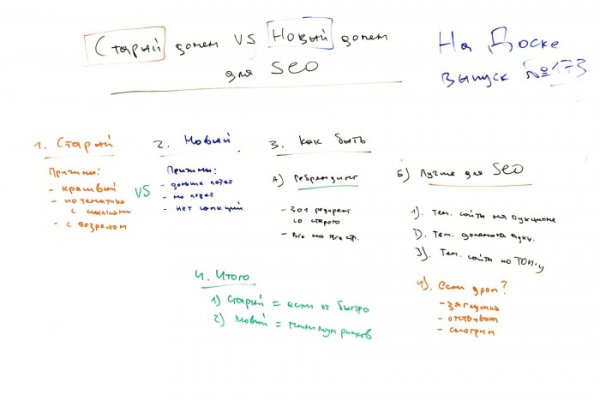 Старый домен VS Новый домен
для SEO
На Доске
выпуск №173
1. Старый
Причины:
- красивый
- по тематике
с ссылками
- с возрастом
VS
2. Новый
Причины:
- дольше
- не
- нет санкций
3. Как быть
А) Ребрендинг
- 301 редирект
со старого
- Все на все стр.
Б) Лучше для SEO
1). Тем. сайты на аукционе
2). Тем. домены на аукц.
3). Тем. сайты по ТОП-у
4). если дроп?
- загрузка
- отстаиваем
- смотрим
4. Итого
1) Старый = если оч быстро
2) Новый = минимум рисков